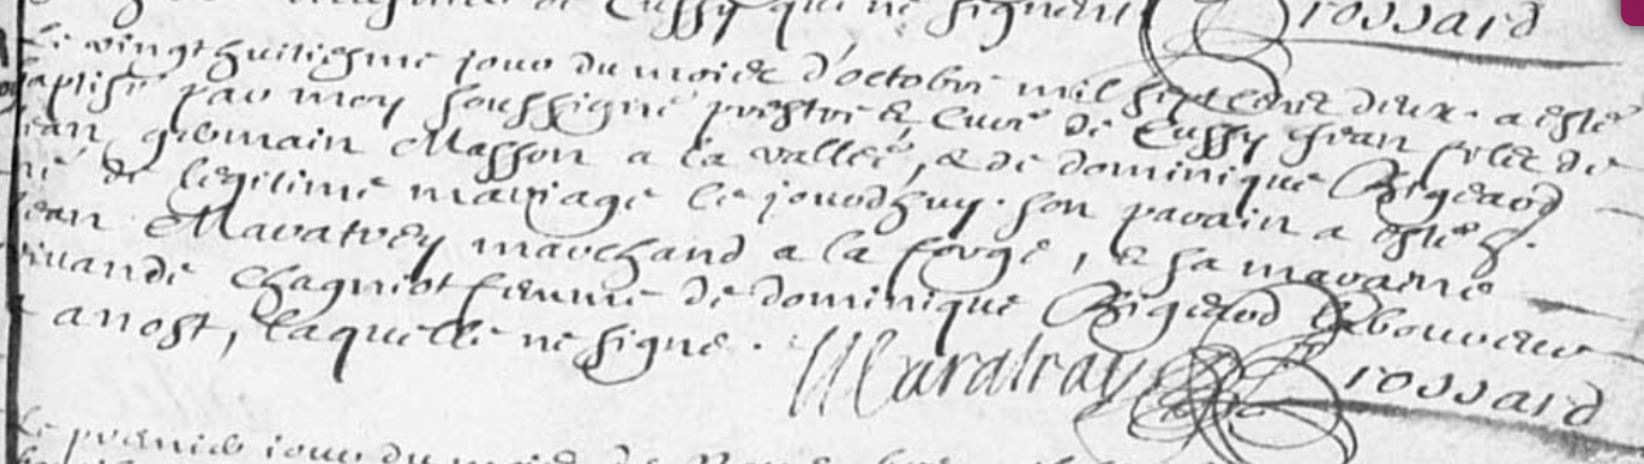 de Cussy qui ne signent Brossard
Le vingthuitiesme jour du mois d'octobre mil sept cent deux a esté
baptisé par moy soussigné prestre & curé de Cussy Jean filz de
Jean germain Masson a la vallée, & de dominique Bigeard
né de legitime mariage le jourdhuy. son parain a esté h.
Jean Maratrey marchand a la forge, & sa maraine
vivande Chagniot femme de dominique Bigeard laboureur
a anost, laquelle ne signe. Maratray Brossard
Le premier jour du mois de